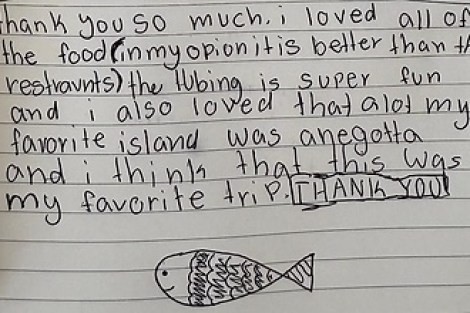 thank you so much. i loved all of
the food (in my opion it is better than th
restravnts) the tubing is super fun
and i also loved that alot my
favorite island was anegotta
and i think that this was
my favorite trip. THANK YOU